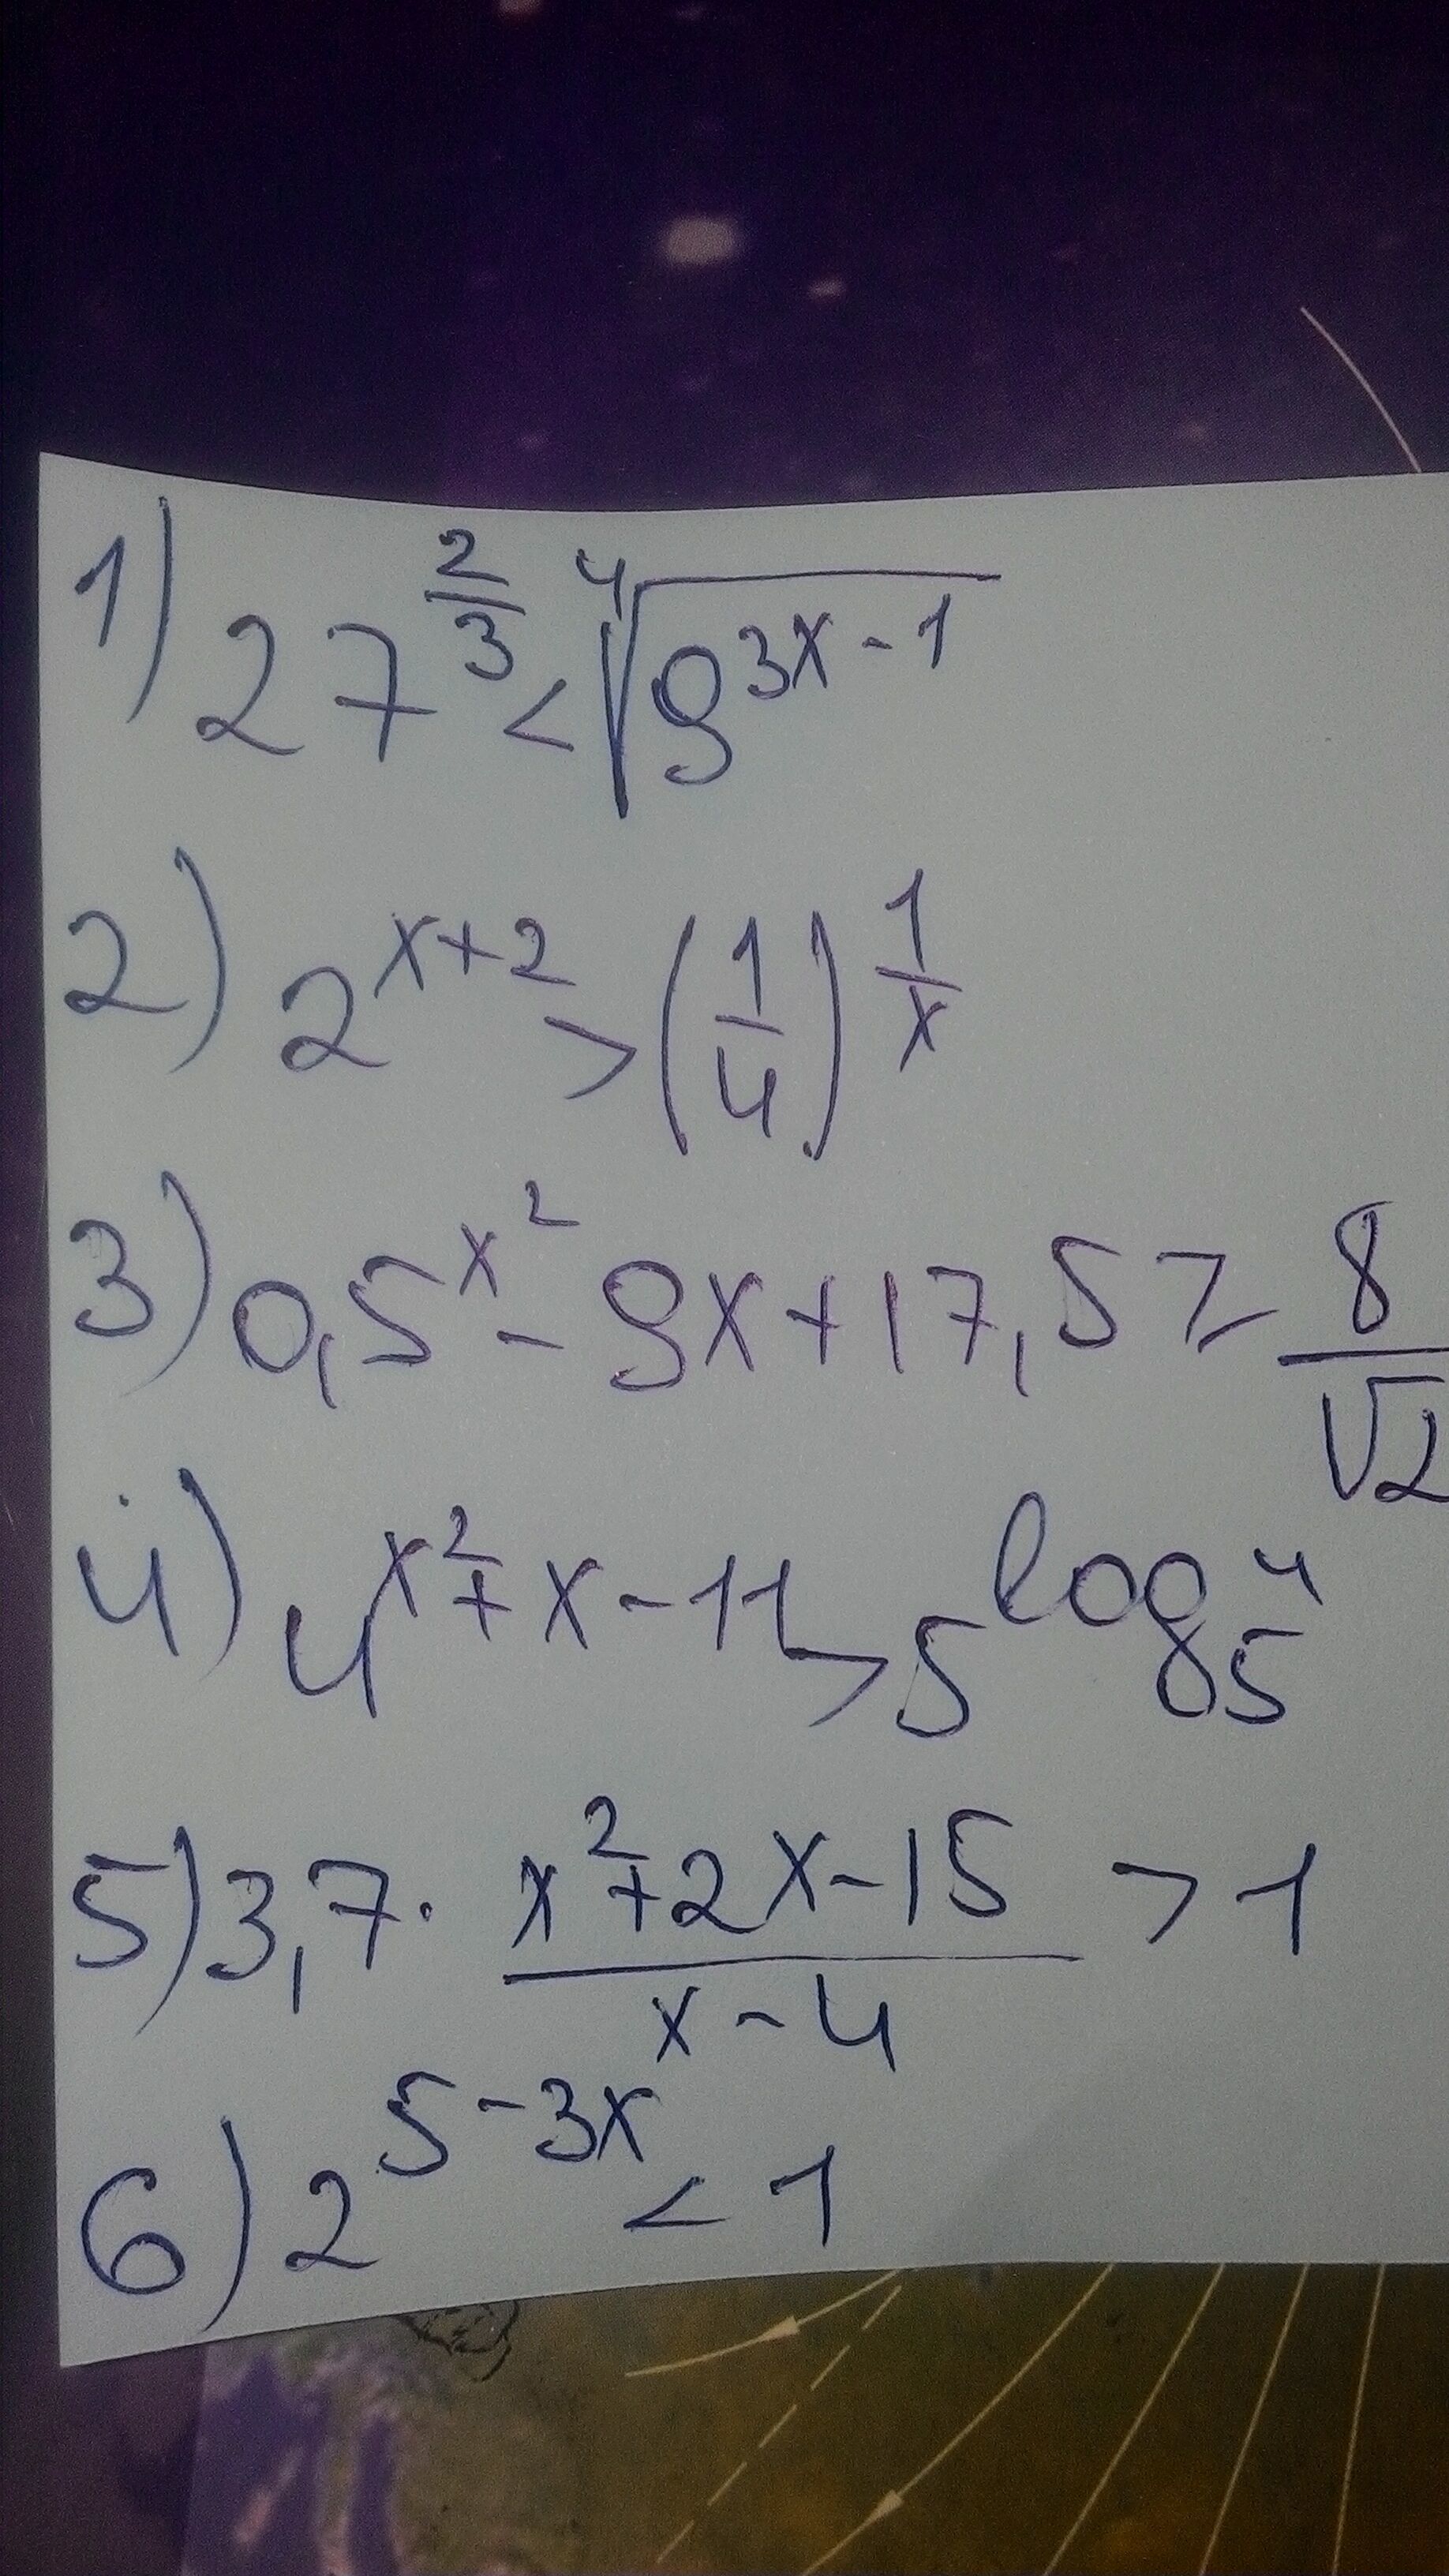 1) 27^(2/3) < ⁴√(9^(3x-1))
2) 2^(x+2) > (1/4)^(1/x)
3) 0,5^(x²) - 9x + 17,5 ≥ 8/√2
4) 4^(x²+x-11) > 5^(log₅4)
5) 3,7 · (x²+2x-15)/(x-4) > 1
6) 2^(5-3x) < 1